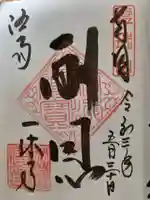 奉拝
令和三年
五月三十日
酬恩
洛南
一休寺